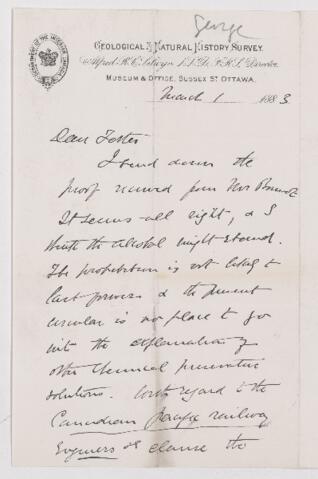 George
GEOLOGICAL & NATURAL HISTORY SURVEY.
Alfred R. C. Selwyn LL.D. F.R.S. Director
MUSEUM & OFFICE, SUSSEX ST OTTAWA.
March 1 1883
Dear Father
I send down the
proof received from Mrs
It seems all right, & I
think the alcohol might stand.
The prohibition is not likely to
last forever & the present
circular is no place to go
into the explanation of
other chemical preservative
solutions. With regard to the
Canadian Pacific railway
Engineers &c clause the